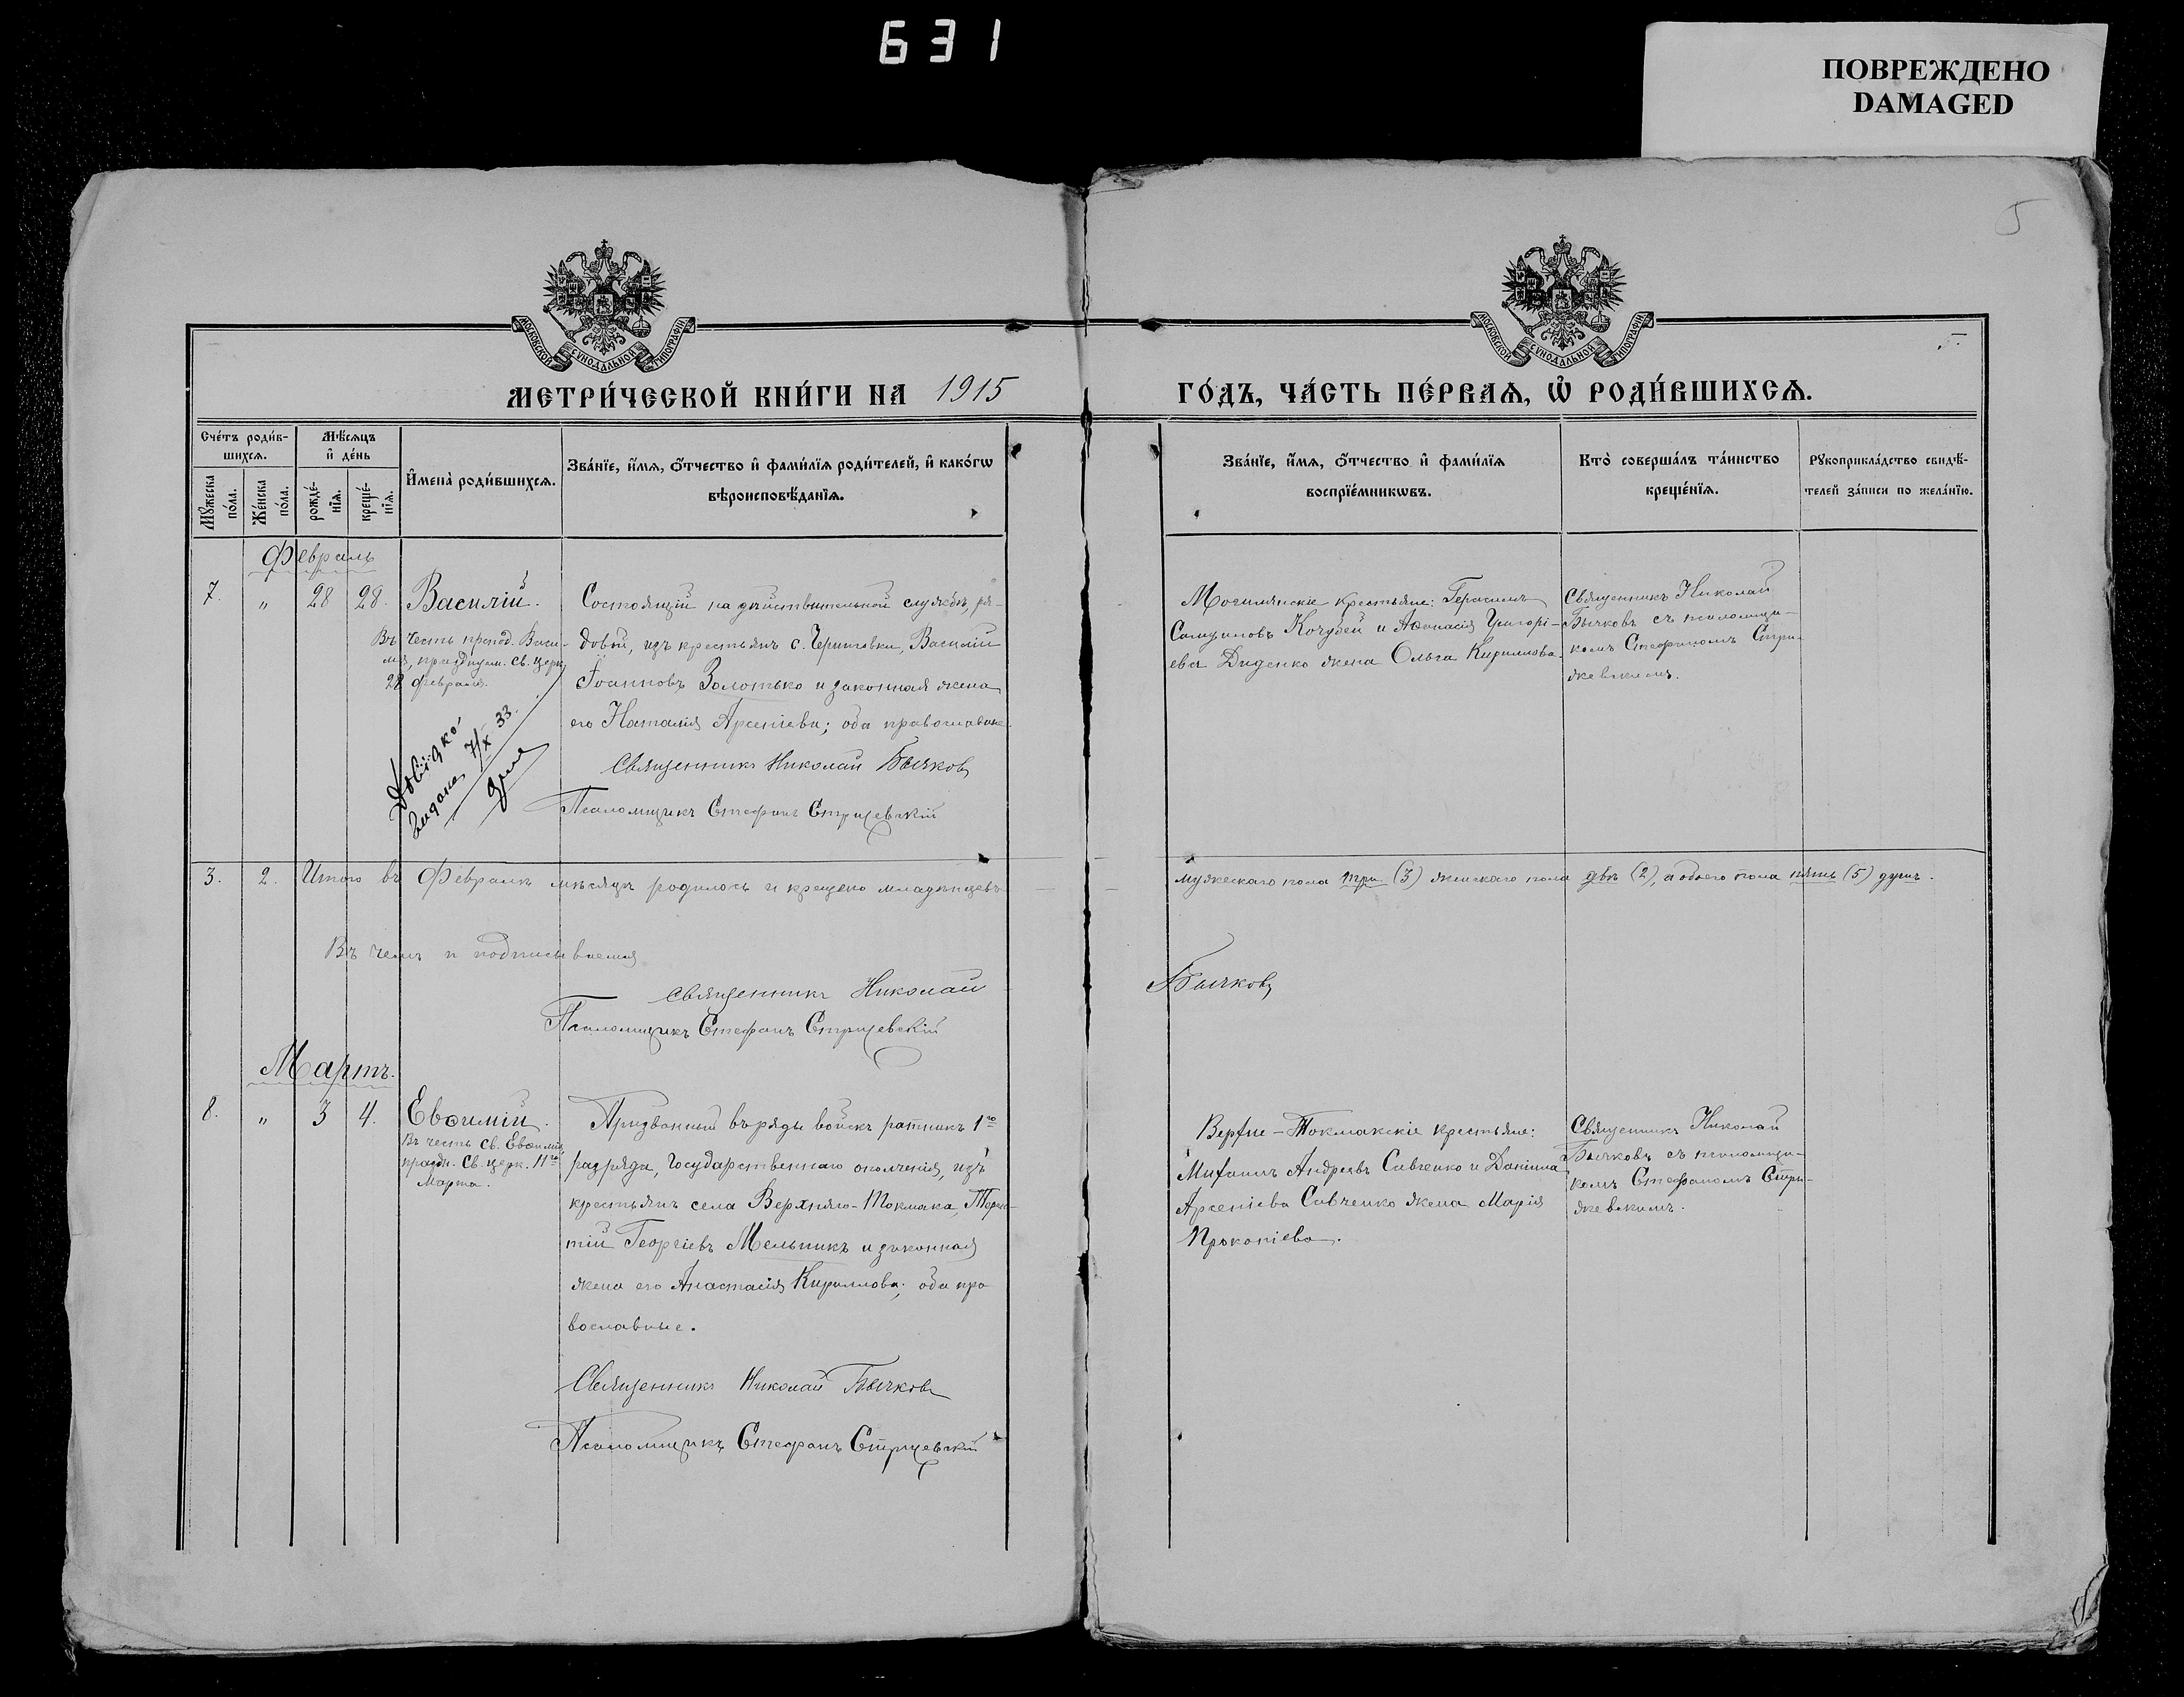 631
ПОВРЕЖДЕНО
DAMAGED
5
МОСКОВСКОЙ СѴНОДАЛЬНОЙ ТИПОГРАФІИ
МОСКОВСКОЙ СѴНОДАЛЬНОЙ ТИПОГРАФІИ
5
МЕТРИ́ЧЕСКОЙ КНИ́ГИ НА 1915
ГО́ДЪ, ЧА́СТЬ ПЕ́РВАѦ, Ѡ҆ РОДИ́ВШИХСѦ.
Сче́тъ роди́в-
шихсѧ.
Мꙋ́жеска
по́ла.
Же́нска
по́ла.
Мѣ́сѧцъ
и҆ де́нь
рожде́-
нїѧ.
креще́-
нїѧ.
И҆мена̀ роди́вшихсѧ.
Зва́нїе, и҆́мѧ, ѻ҆́тчество и҆ фами́лїѧ роди́телей, и҆ како́гѡ
вѣроисповѣ́данїѧ.
Зва́нїе, и҆́мѧ, ѻ҆́тчество и҆ фами́лїѧ
воспрїе́мникѡвъ.
Кто̀ соверша́лъ та́инство
креще́нїѧ.
Рꙋкоприкла́дство свидѣ́-
телей за́писи по жела́нїю.
Февраль
7. " 28 28. Василій.
Въ честь препод. Васи-
лія, празднуем. св. церк.
28 февраля.
выдана 7/X 33.
Состоящій на дѣйствительной службѣ, ря-
довой, изъ крестьянъ с. Черниговки, Василій
Іоанновъ Золотько и законная жена
его Наталія Арсеніева; оба православные.
Священникъ Николай Бычковъ
Псаломщикъ Стефанъ Стрижевскій
крестьяне: Герасимъ
Кочубей и Аѳанасія Григорі-
ева Диденко жена Ольга Кириллова.
Священникъ Николай
Бычковъ съ псаломщи-
комъ Стефаномъ Стри-
жевскимъ.
3. 2. Итого въ Февралѣ мѣсяцѣ родилось и крещено младенцевъ
мужескаго пола три (3) женскаго пола двѣ (2), а обоего пола пять (5) душъ.
Въ чемъ и подписываемся
Священникъ Николай
Бычковъ
Псаломщикъ Стефанъ Стрижевскій
Мартъ.
8. " 3 4. Евѳимій.
Въ честь св. Евѳимія,
праздн. св. церк. 11го
Марта.
Призванный въ ряды войскъ ратникъ 1го
разряда, Государственнаго ополченія, изъ
крестьянъ села Верхняго-Токмака,
Георгіевъ Мельникъ и законная
жена его Анастасія Кириллова; оба пра
вославные.
Священникъ Николай Бычковъ
Псаломщикъ Стефанъ Стрижевскій
Верхне-Токмакскіе крестьяне:
Михаилъ Андреевъ Савченко и Даніила
Арсеніева Савченко жена Марія
Прокопіева.
Священникъ Николай
Бычковъ съ псаломщи-
комъ Стефаномъ Стри-
жевскимъ.